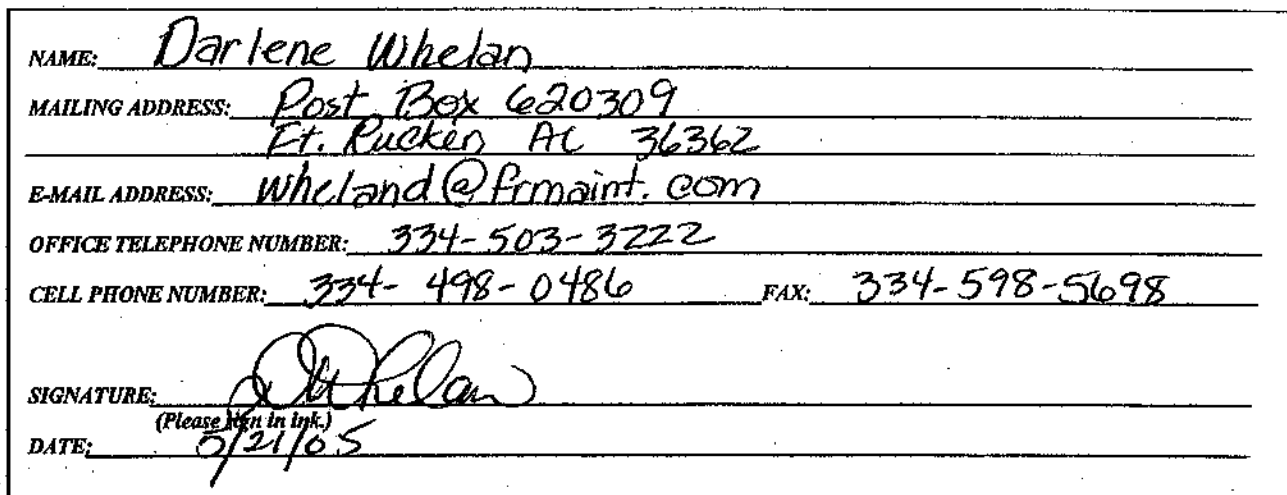 NAME: Darlene Whelan
MAILING ADDRESS: Post Box 620309
Ft. Rucker, AL 36362
E-MAIL ADDRESS: wheland@frmaint.com
OFFICE TELEPHONE NUMBER: 334-503-3222
CELL PHONE NUMBER: 334-498-0486 FAX: 334-598-5698
SIGNATURE: DWhelan
(Please sign in ink.)
DATE: 5/21/05